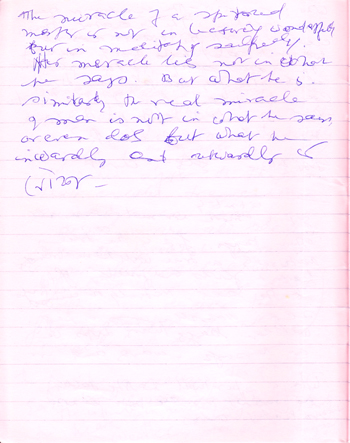 The miracle of a spiritual
master is not in lecturing wonderfully
but in meditating silently.
His miracle lies not in what
he says. But what he is.
Similarly the real miracle
of man is not in what he says
or even does but what he
inwardly and outwardly is